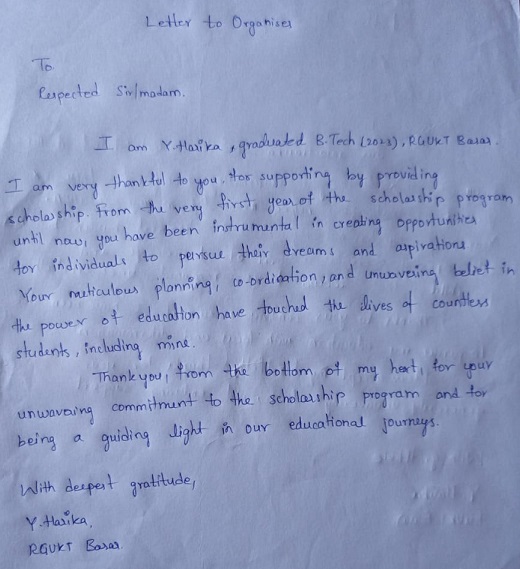 Letter to Organiser
To
Respected Sir/madam.
I am Y.Harika, graduated B.Tech (2023), RGUKT Basar.
I am very thankful to you, for supporting by providing
scholarship. From the very first year of the scholarship program
until now, you have been instrumental in creating opportunities
for individuals to persue their dreams and aspirations
Your meticulous planning, co-ordication, and unwavering belief in
the power of education have touched the lives of countless
students, including mine.
Thank you, from the bottom of my heart, for your
unwavaring commitment to the scholarship program and for
being a guiding light in our educational journeys.
With deepest gratitude,
Y.Harika,
RGUKT Basar.